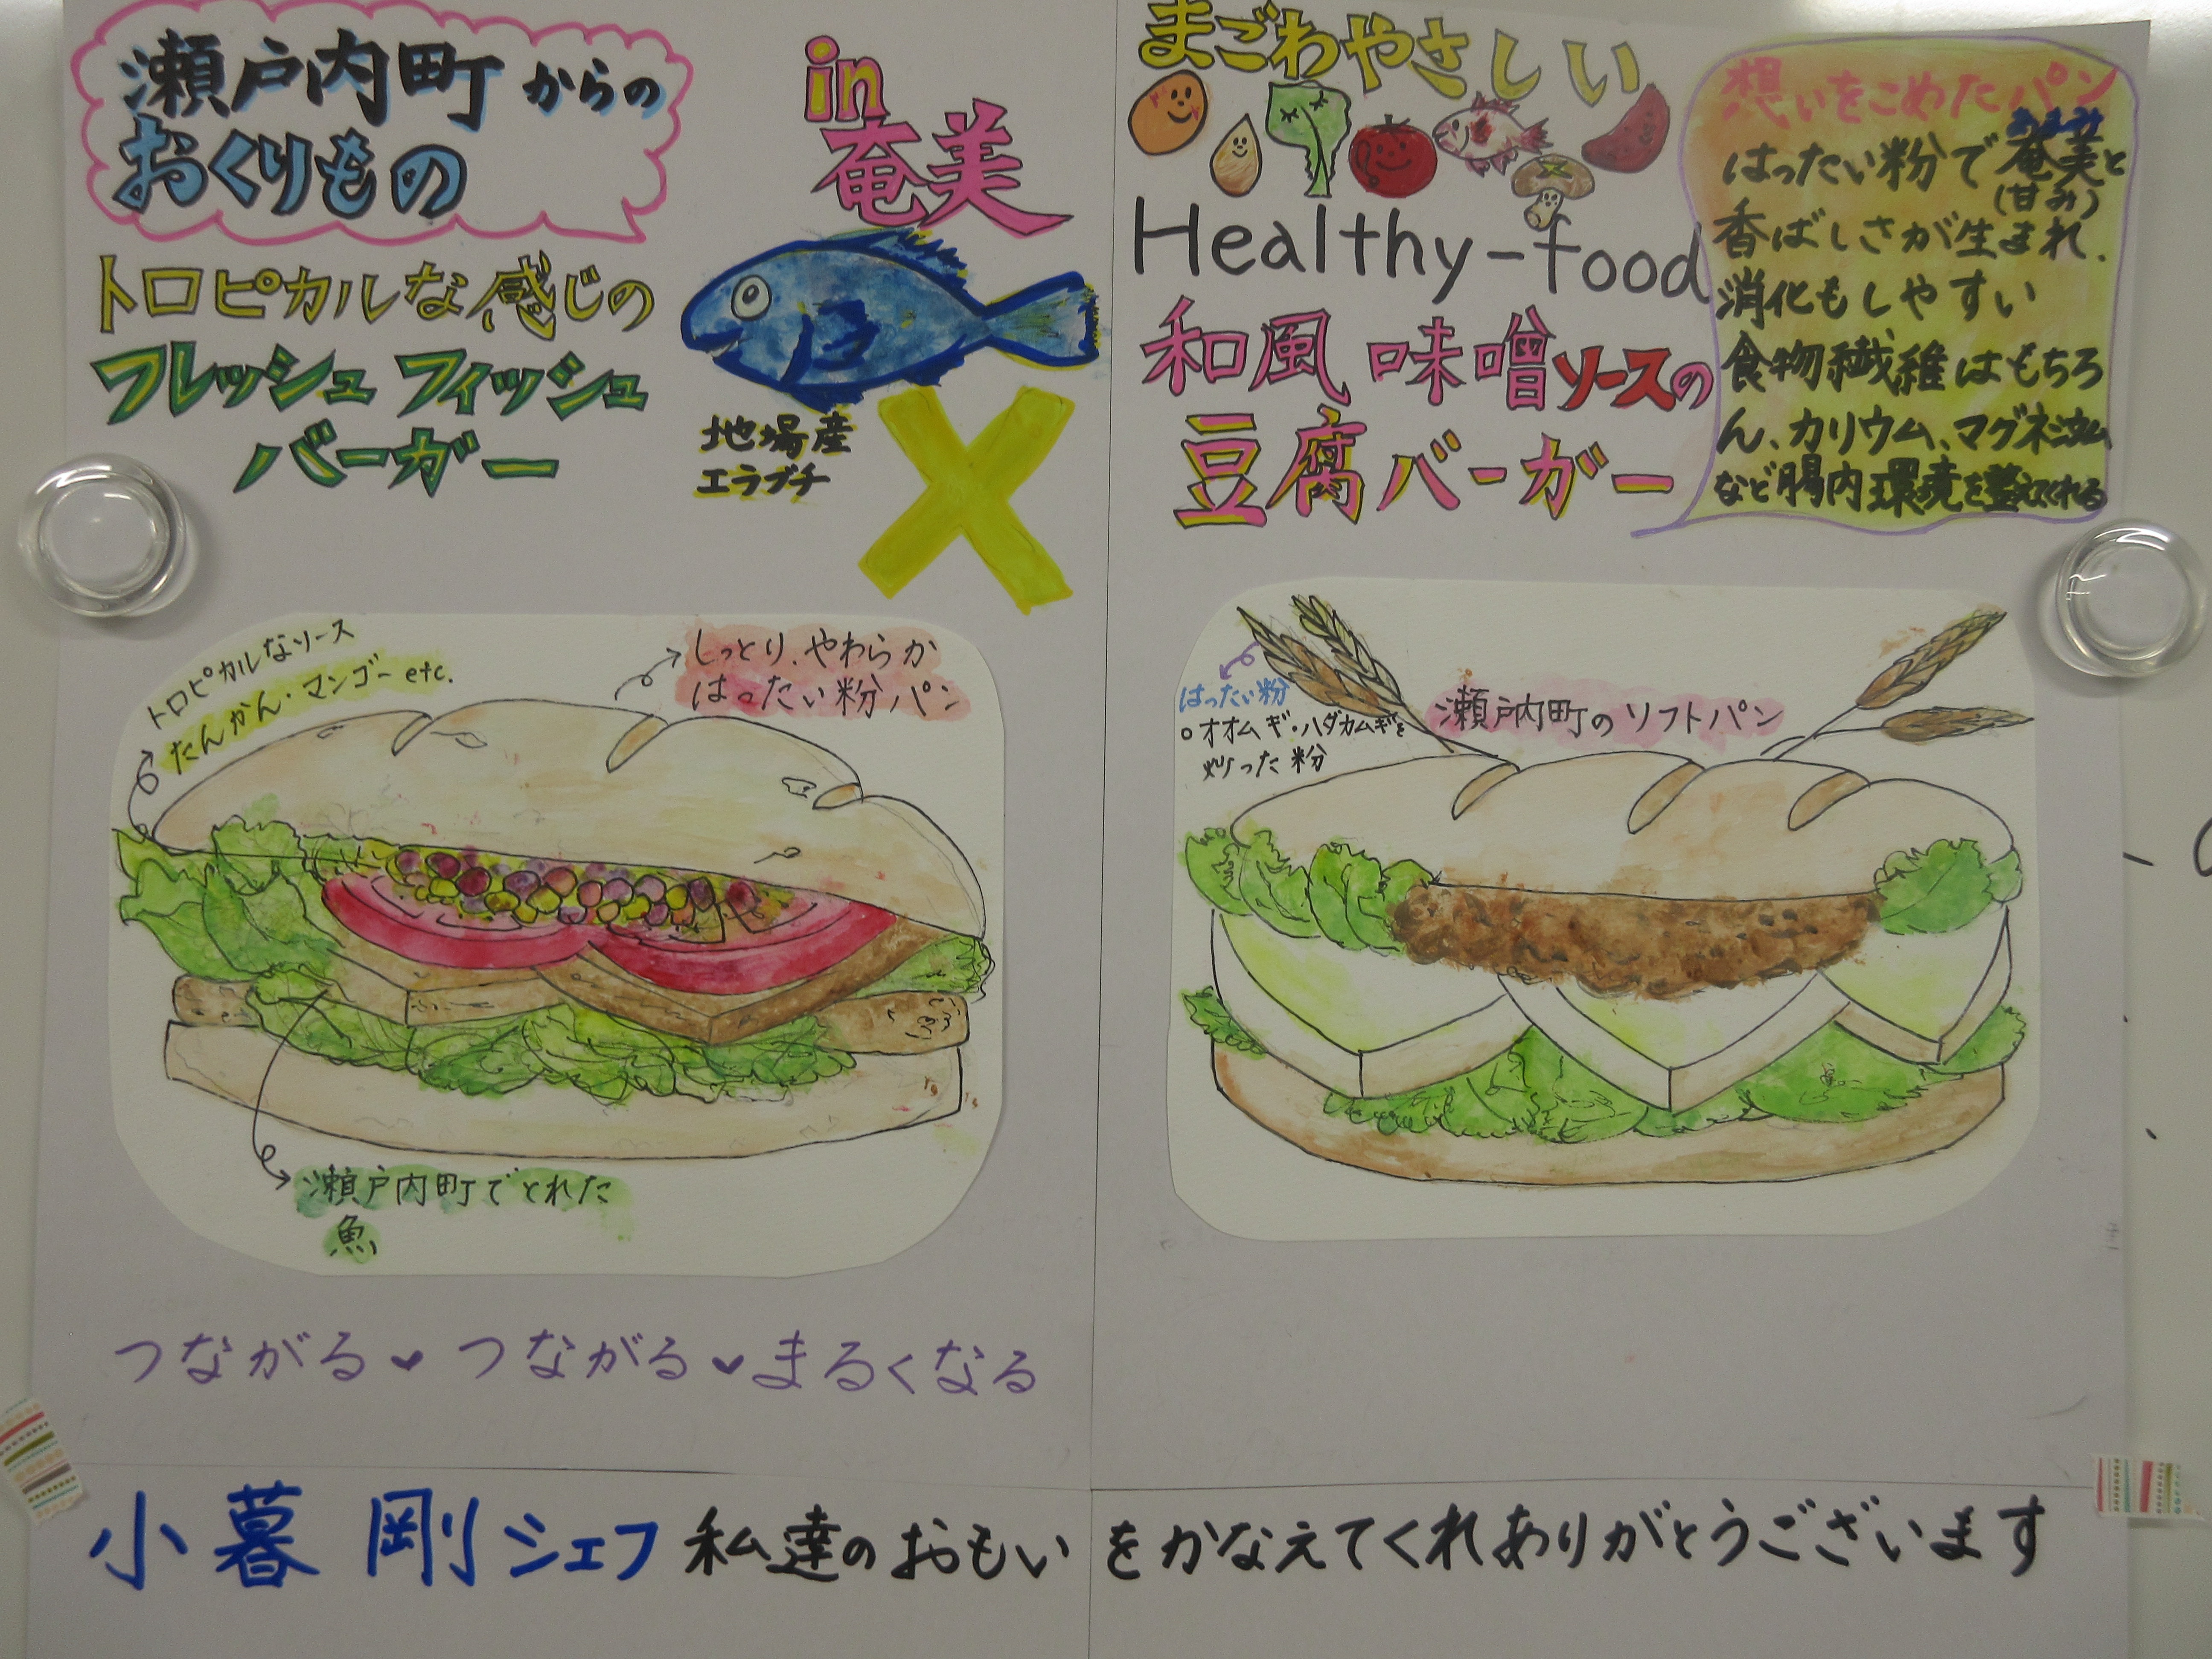 瀬戸内町からの
おくりもの
in
奄美
トロピカルな感じの
フレッシュ フィッシュ
バーガー
地場産
エラブチ
トロピカルなソース
たんかん・マンゴー etc.
しっとり、やわらか
はったい粉パン
瀬戸内町でとれた
魚
つながる♥つながる♥まるくなる
まごわやさしい
Healthy-food
和風 味噌ソースの
豆腐バーガー
想いをこめたパン
あまみ
はったい粉で奄美と
(甘み)
香ばしさが生まれ、
消化もしやすい
食物繊維はもちろ
ん、カリウム、マグネシウム
など腸内環境を整えてくれる
はったい粉
○オオムギ・ハダカムギを
炒った粉
瀬戸内町のソフトパン
小暮 剛シェフ 私達のおもいをかなえてくれありがとうございます